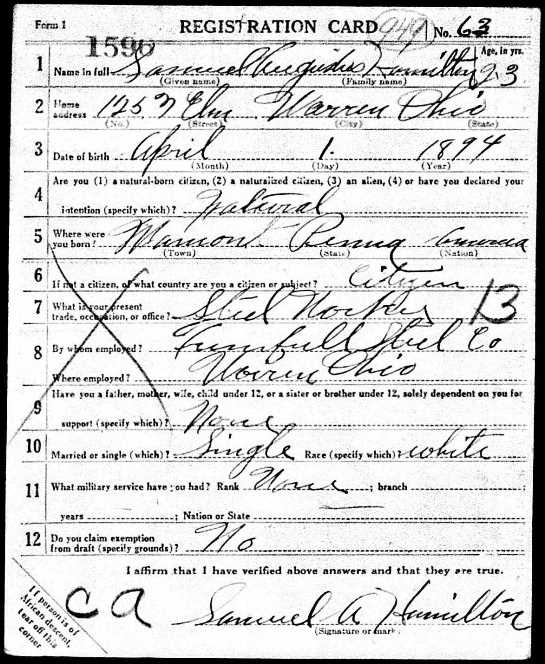 Form 1 REGISTRATION CARD 949 No. 63
1590 Age, in yrs.
1 Name in full Samuel Hamilton 23
(Given name) (Family name)
2 Home address 125 N Elm Warren Ohio
(No.) (Street) (City) (State)
3 Date of birth April 1. 1894
(Month) (Day) (Year)
4 Are you (1) a natural-born citizen, (2) a naturalized citizen, (3) an alien, (4) or have you declared your
intention (specify which)? Natural
5 Where were you born? Penna America
(Town) (State) (Nation)
6 If not a citizen, of what country are you a citizen or subject? Citizen
7 What is your present trade, occupation, or office? Steel Worker 13
8 By whom employed? Trumbull Steel Co
Where employed? Warren Ohio
9 Have you a father, mother, wife, child under 12, or a sister or brother under 12, solely dependent on you for
support (specify which)? None
10 Married or single (which)? Single Race (specify which)? white
11 What military service have you had? Rank None ; branch
years ; Nation or State
12 Do you claim exemption from draft (specify grounds)? No
I affirm that I have verified above answers and that they are true.
If person is of African descent, tear off this corner
Ca Samuel A Hamilton
(Signature or mark)